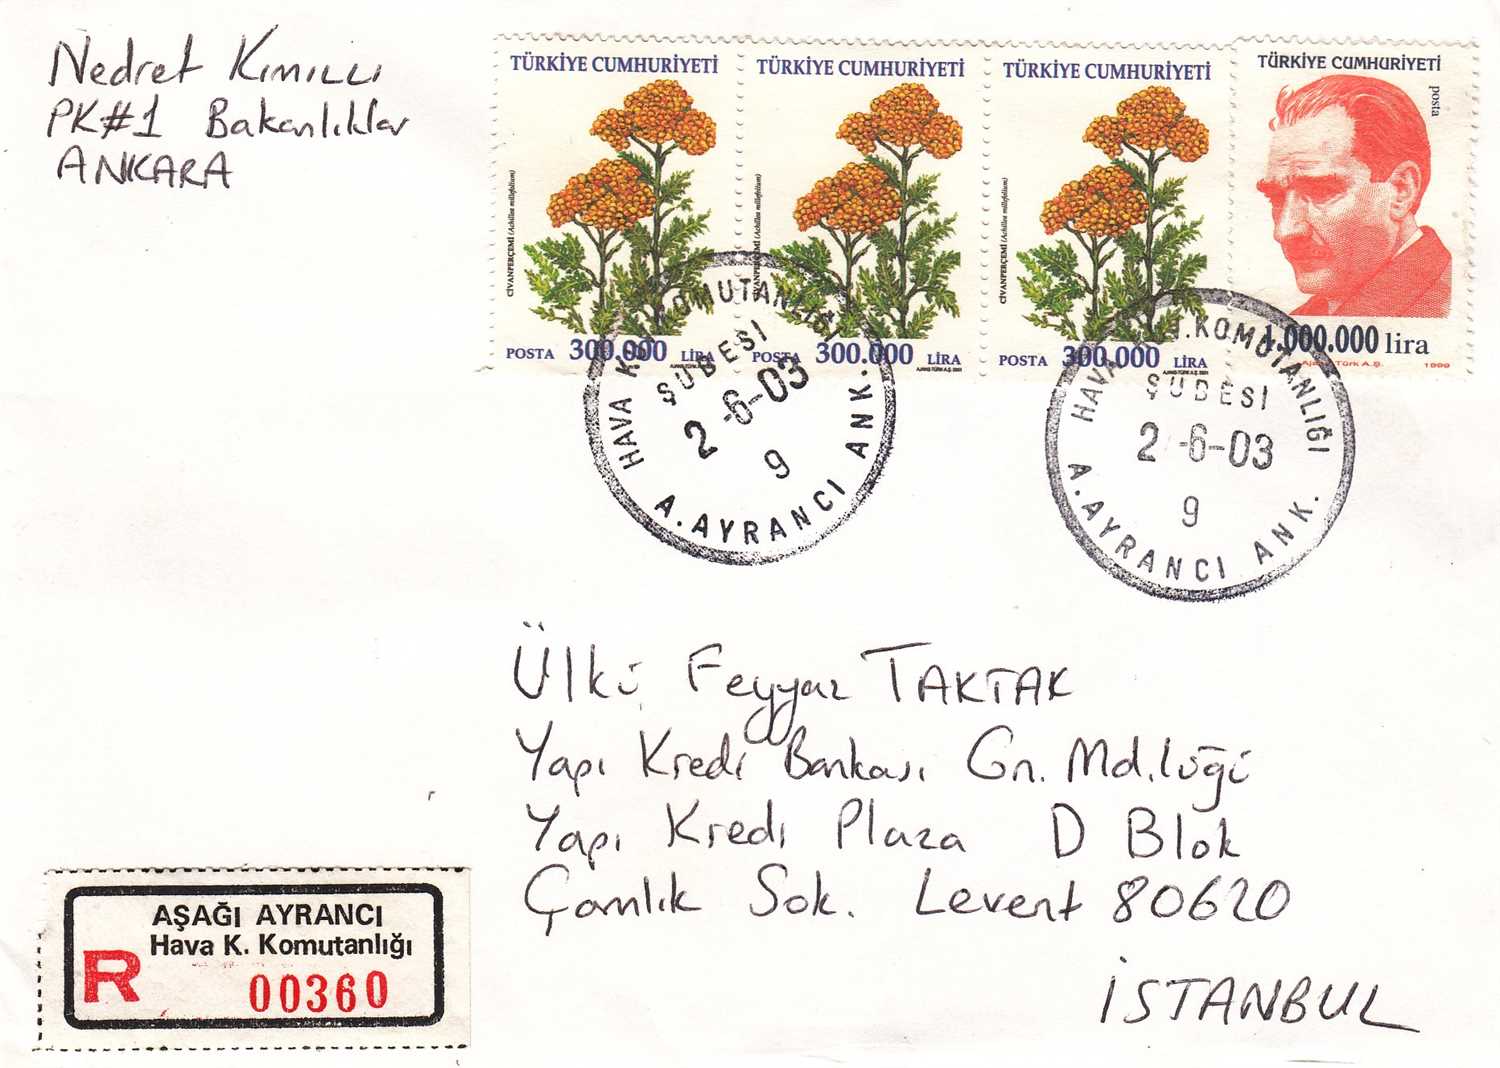 Nedret Kımıllı
PK#1 Bakanlıklar
ANKARA
TÜRKİYE CUMHURİYETİ
CİVANPERÇEMİ (Achillea millefolium)
POSTA 300.000 LİRA
AJANS TÜRK A.Ş. 2001
TÜRKİYE CUMHURİYETİ
CİVANPERÇEMİ (Achillea millefolium)
POSTA 300.000 LİRA
AJANS TÜRK A.Ş. 2001
TÜRKİYE CUMHURİYETİ
CİVANPERÇEMİ (Achillea millefolium)
POSTA 300.000 LİRA
AJANS TÜRK A.Ş. 2001
TÜRKİYE CUMHURİYETİ
posta
1.000.000 lira
Ajans Türk A.Ş. 1999
HAVA K. KOMUTANLIĞI
ŞUBESİ
2-6-03
9
A.AYRANCI ANK.
HAVA KOMUTANLIĞI
ŞUBESİ
2-6-03
9
A.AYRANCI ANK.
Ülkü Feyyaz TAKTAK
Yapı Kredi Bankası Gn. Md.lüğü
Yapı Kredi Plaza D Blok
Çamlık Sok. Levent 80620
İSTANBUL
AŞAĞI AYRANCI
Hava K. Komutanlığı
R 00360